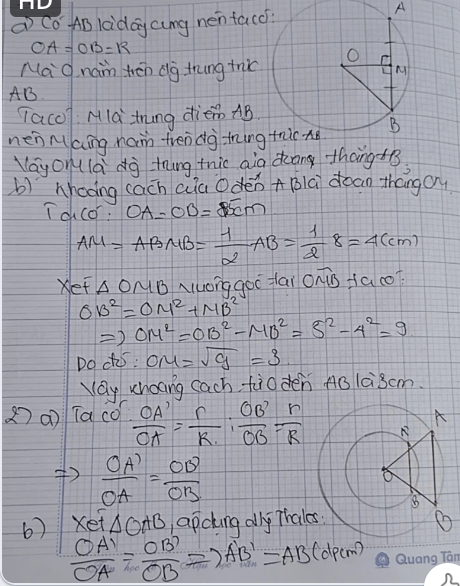 HD
a) Có AB là dây cung nên ta có:
OA = OB = R
Mà O nằm trên đg trung trực
AB.
Ta có: M là trung điểm AB.
nên M cũng nằm trên đg trung trực AB
Vậy OM là đg trung trực của đoạn thẳng AB.
b) Khoảng cách của O đến AB là đoạn thẳng OM.
Ta có: OA = OB = 5cm
AM = MB = 1/2 AB = 1/2 8 = 4(cm)
Xét Δ OMB vuông góc tại OMB ta có:
OB² = OM² + MB²
=> OM² = OB² - MB² = 5² - 4² = 9
Do đó: OM = √9 = 3
Vậy khoảng cách từ O đến AB là 3cm.
2) a) Ta có OA'/OA = r/R ; OB'/OB r/R
=> OA'/OA = OB'/OB
b) Xét ΔOAB, áp dụng đlý Thales:
OA'/OA = OB'/OB => A'B' = AB (đpcm)
A
O
M
B
A
O
B
B
Quang Tân